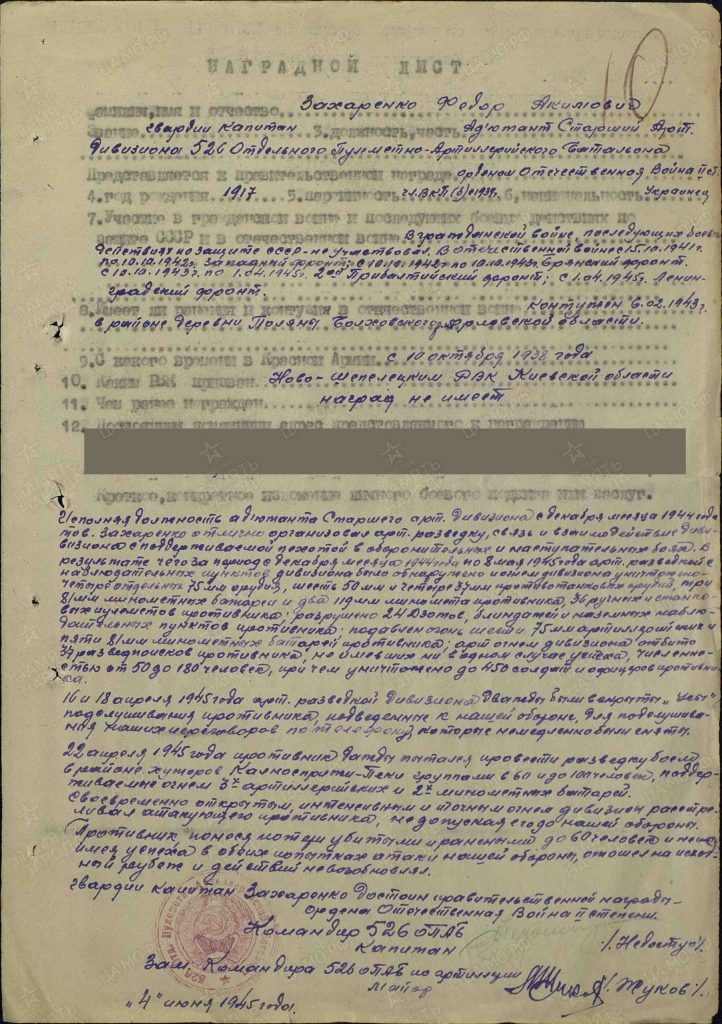 НАГРАДНОЙ ЛИСТ
Фамилия, имя и отчество Захаренко Федор Акимович
Звание гвардии капитан 3. должность, часть Адъютант Старший Арт.
Дивизиона 526 Отдельного Пулеметно-Артиллерийского Батальона
Представляется к правительственной награде орденом Отечественная Война II ст.
4. год рождения 1917 5. партийность чл. ВКП(б) с 1939г. 6. национальность Украинец
7. Участие в гражданской войне и последующих боевых действиях по
защите СССР и в отечественной войне В гражданской войне, последующих боевых
действиях по защите СССР не участвовал. В отечественной войне с 15.10.1941г.
по 10.10.1943г. Брянский фронт.
с 10.10.1943г. по 1.04.1945г. 2ой Прибалтийский фронт; с 1.04.1945г. Ленин-
градский фронт.
8. Имеет ли ранения и контузии в отечественной войне контужен 6.02.1943г.
в районе деревни Поляны, Болховского р-на Орловской области.
9. С какого времени в Красной Армии с 10 октября 1938 года
10. Каким РВК призван Ново-Шепелецким РВК Киевской области
11. Чем ранее награжден наград не имеет
12. Постоянный домашний адрес представляемого к награждению
Краткое, конкретное изложение личного боевого подвига или заслуг.
Исполняя должность адъютанта Старшего арт. дивизиона с декабря месяца 1944 года
тов. Захаренко отлично организовал арт. разведку, связь и взаимодействие диви-
визиона с поддерживаемой пехотой в оборонительных и наступательных боях. В
результате чего за период с декабря месяца 1944 года по 8 мая 1945 года арт. разведкой с
наблюдательных пунктов дивизиона было обнаружено и огнем дивизиона уничтожено-
четыре отдельных 75мм орудия, шесть 50мм и четыре 37мм противотанковых орудий, три
81мм минометных батареи и два 119мм миномета противника, 36 ручных и станко-
вых пулеметов противника; разрушено 24 Дзотов, блиндажей и наземных наблю-
дательных пунктов противника; подавлен огонь шести 75мм артиллерийских и
пяти 81мм минометных батарей противника; арт огнем дивизиона отбито
34 разведпоисков противника, не имевших ни в одном случае успеха, численно-
стью от 50 до 180 человек, при чем уничтожено до 450 солдат и офицеров противни-
ка.
16 и 18 апреля 1945 года арт. разведкой дивизиона дважды были вскрыты „Усы"
подслушивания противника, подведенные к нашей обороне, для подслушива-
ния наших переговоров по телефону, которые немедленно были сняты.
22 апреля 1945 года противник дважды пытался провести разведку боем
в районе хуторов группами в 60 и до 100 человек, поддер-
живаемые огнем 3х артиллерийских и 2х минометных батарей.
Своевременно открытым, интенсивным и точным огнем дивизион расстре-
ливал атакующего противника, не допуская его до нашей обороны.
Противник понеся потери убитыми и ранеными до 60 человек и не
имея успеха в обоих попытках атаки нашей обороны, отошел на исход-
ный рубеж и действий не возобновлял.
Гвардии капитан Захаренко Достоин правительственной награды-
Ордена Отечественная Война II степени.
Командир 526 ОПАБ
Капитан /Недоступ/.
Зам. Командира 526 ОПАБ по артиллерии
Майор /Жуков/.
„4" июня 1945 года.